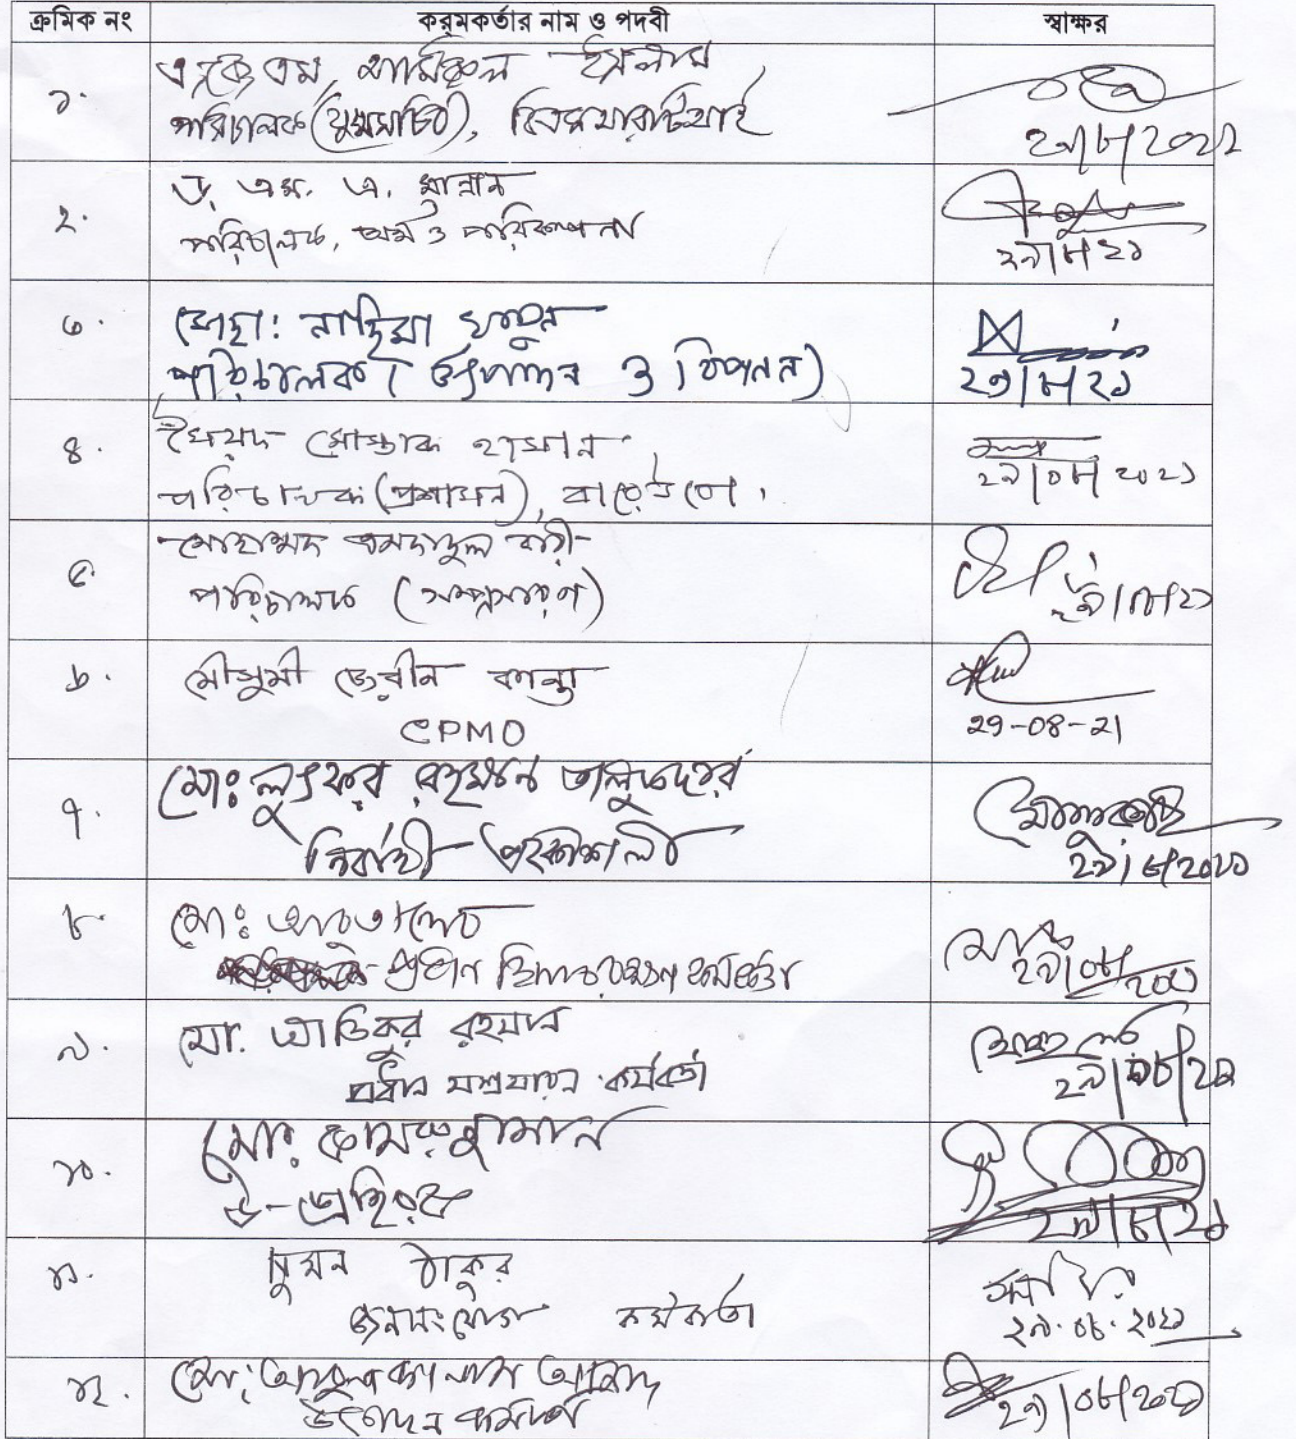 ক্রমিক নং করমকর্তার নাম ও পদবী স্বাক্ষর
১. এ,কে,এম, আমিরুল ইসলাম
পরিচালক (যুগ্মসচিব), বিএসআরটিআই
২৯/৮/২০২১
২. ড. এম. এ. মান্নান
পরিচালক, অর্থ ও পরিকল্পনা
২৯/৮/২১
৩. মোছা: নাছিমা খাতুন
পরিচালক (উৎপাদন ও বিপনন)
২৯/৮/২১
৪. সৈয়দ মোস্তাক হাসান
পরিচালক (প্রশাসন), বারেউবো।
২৯/০৮/২০২১
৫. মোহাম্মদ এমদাদুল বারী
পরিচালক (সম্প্রসারণ)
২৯/০৮/২১
৬. মৌসুমী জেরীন কান্তা
CPMO
২৯-০৮-২১
৭. মোঃ লুৎফর রহমান তালুকদার
নির্বাহী প্রকৌশলী
২৯/৮/২০২১
৮. মোঃ আবু তালেব
প্রধান হিসাবরক্ষণ কর্মকর্তা
২৯/০৮/২০২১
৯. মো. আতিকুর রহমান
প্রধান সম্প্রসারন কর্মকর্তা
২৯/০৮/২১
১০. মোঃ কামরুজ্জামান
২৯/৮/২১
১১. সুমন ঠাকুর
জনসংযোগ কর্মকর্তা
২৯.০৮.২০২১
১২. মো: আবুল কালাম আজাদ
উৎপাদন কর্মকর্তা
২৯/০৮/২০২১